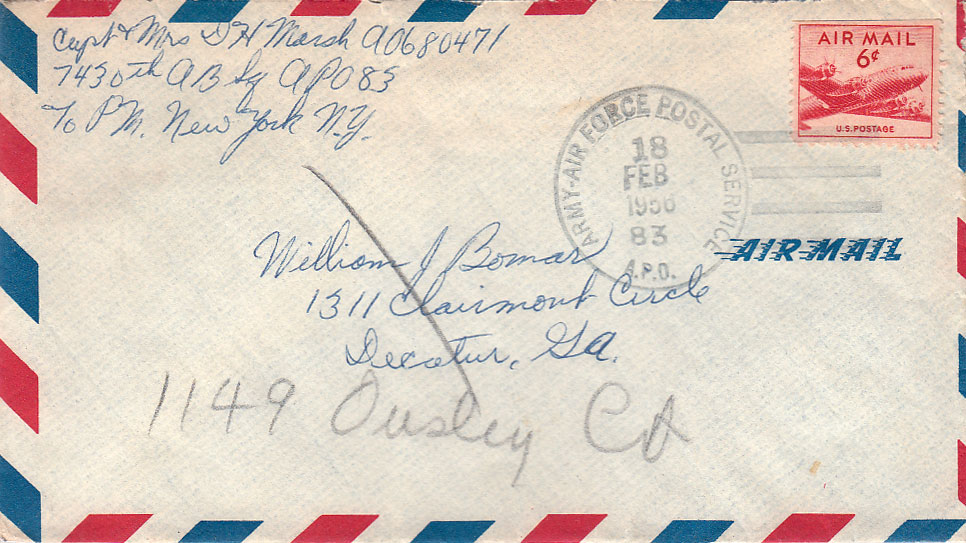 Capt & Mrs D H Marsh AO680471
7430th AB Sq APO 83
℅ PM. New York N.Y.
AIR MAIL
6¢
U.S. POSTAGE
ARMY-AIR FORCE POSTAL SERVICE
18
FEB
1956
83
A.P.O.
AIR MAIL
William J Bomar
1311 Clairmont Circle
Decatur, Ga.
1149 Ousley Ct